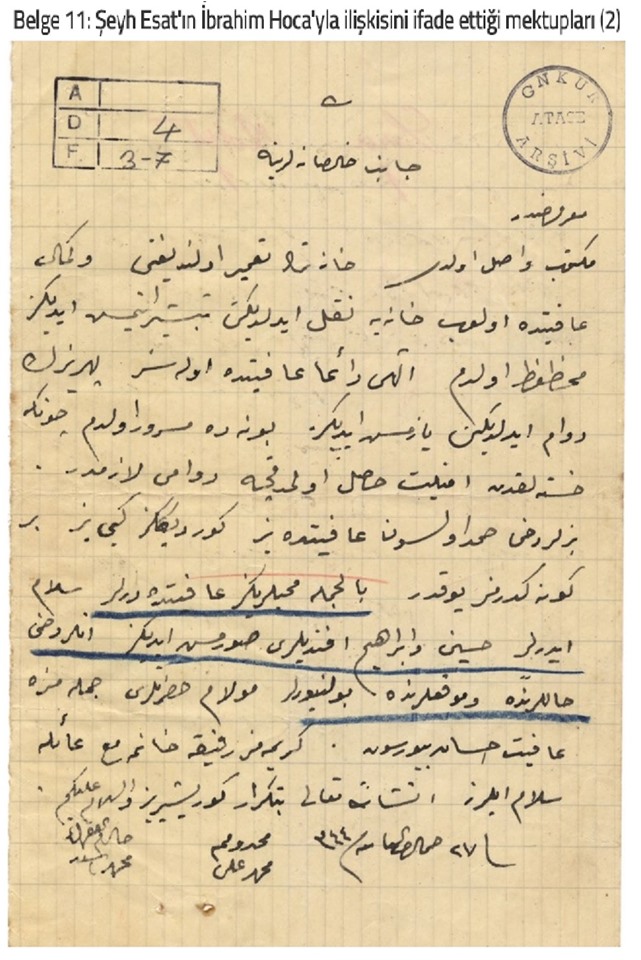 Belge 11: Şeyh Esat'ın İbrahim Hoca'yla ilişkisini ifade ettiği mektupları (2)
A
D 4
F. 3-7
GNKUR
ATASE
ARŞİVİ
جانب خالصانه لرینه
معروضدر
مکتوب واصل اولدی خانه نڭ تعمیر اولندیغنی وکمال
عافیتده اولوب خانه یه نقل ایدلدیکن تبشیر ایتمش ایدیکز
محظوظ اولدم الهی دائما عافیتده اوله سز پرهیزڭ
دوام ایدلدیکن یازمش ایدیکز بوندنده مسرور اولدم چونکه
خسته لقدن افاقیت حاصل اولمدقچه دوامی لازمدر .
بزلر دخی حمد اولسون عافیتده یز کوردیککز کبی یز بر
کونه کدرمز یوقدر بالجمله محبلریکز عافیتده درلر سلام
ایدرلر حسین وابراهیم افندیلری صورمش ایدیکز انلر دخی
حاللرنده وموقعلرنده بولنیورلر مولام حضرتلری جمله مزه
عافیت احسان بیورسون . کریمه مز رفیقه خانمه مع عائله
سلام ایلرز انشاءالله تعالی تکرار کوریشیریز والسلام علیکم
٢٧ سنه ٣٤٤
مخدومم
محمد علی
محمد اسعد